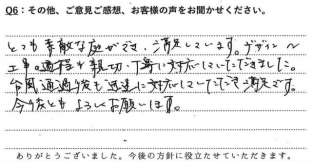 Q6：その他、ご意見ご感想、お客様の声をお聞かせください。
とても素敵な庭ができ、満足しています。デザイン〜
工事の過程も親切・丁寧に対応していただきました。
台風通過後も迅速に対応していただき満足です。
今後ともよろしくお願いします。
ありがとうございました。今後の方針に役立たせていただきます。